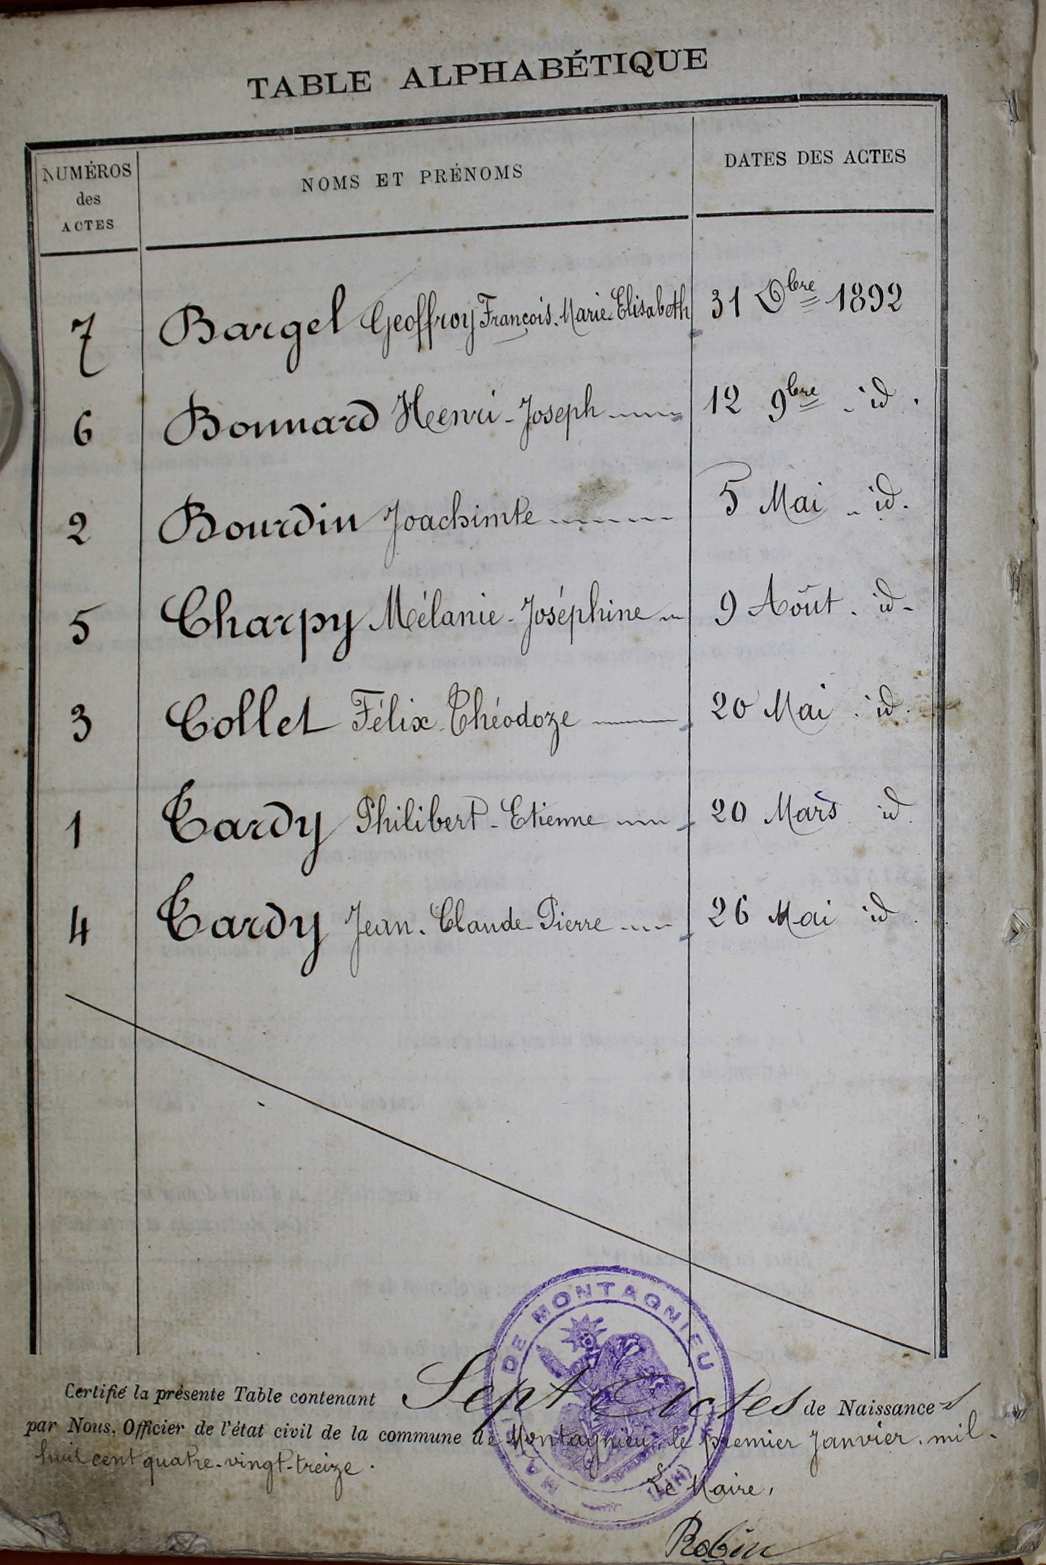 TABLE ALPHABÉTIQUE
NUMÉROS des ACTES NOMS ET PRÉNOMS DATES DES ACTES
7 Bargel Geoffroy François. Marie. Elisabeth 31 Xbre 1892
6 Bonnard Henri - Joseph 12 9bre - id.
2 Bourdin Joachimte 5 Mai - id.
5 Charpy Mélanie - Joséphine 9 Août. id-
3 Collet Félix Théodoze 20 Mai. id.
1 Tardy Philibert - Etienne 20 Mars id.
4 Tardy Jean. Claude - Pierre 26 Mai id.
Certifié la présente Table contenant Sept Actes de Naissances
par Nous, Officier de l'état civil de la commune de Montagnieu, le premier Janvier, mil-
huit cent quatre-vingt-treize.
Le Maire,
Robin
MAIRIE DE MONTAGNIEU
(AIN)